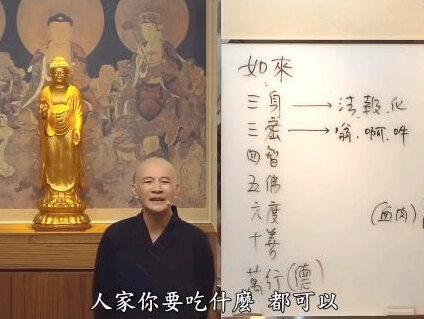 如來
三身 → 法.報.化
三密 → 嗡.啊.吽
四智
五佛
六度
(血肉)
十善
萬行(德)
人家你要吃什麼 都可以